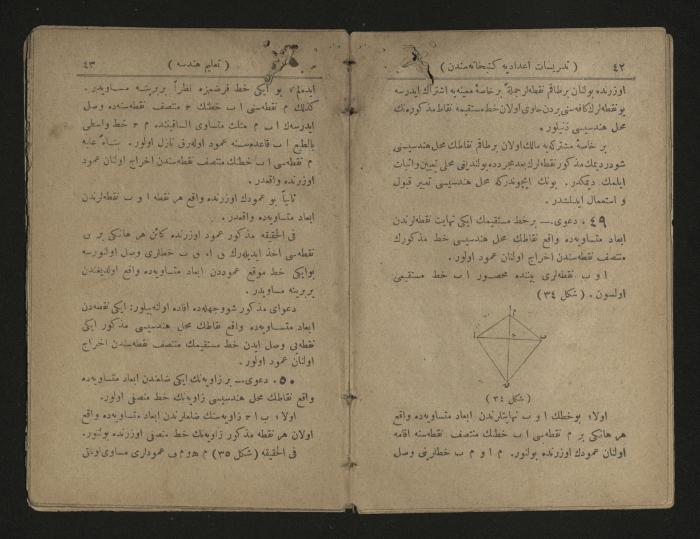 ٤٢ ( تدريسات اعداديه كتبخانه‌سندن )
اوزرنده بولنان برطاقم نقطه‌لر جملةً برخاصهٔ معينه‌يه اشتراك ايدرسه
بو نقطه‌لرك كافه‌سنى بردن حاوى اولان خط مستقيمه نقاط مذكوره‌نك
محل هندسيسى دنيلور .
بر خاصهٔ مشتركه‌يه مالك اولان برطاقم نقاطك محل هندسيسى
شودر ديمك مذكور نقطه‌لرك بعد مجرد ده بولنديغى محلى تعيين واثبات
ايلمك ديمكدر . بونك ايچوندركه محل هندسيسى تعبير قبول
و استعمال ايدلمشدر .
٤٩ . دعوى ـــ بر خط مستقيمك ايكى نهايت نقطه‌لرندن
ابعاد متساويه‌ده واقع نقاطك محل هندسيسى خط مذكورك
منتصف نقطه‌سندن اخراج اولنان عمود اولور .
ا و ب نقطه‌لرى بيننده محصور ا ب خط مستقيمى
اولسون . ( شكل ٣٤ )
( شكل ٣٤ )
اولا ؛ بوخطك ا و ب نهايتلرندن ابعاد متساويه‌ده واقع
هر هانكى بر م نقطه‌سى ا ب خطنك منتصف نقطه‌سنه اقامه
اولنان عمودك اوزرنده بولنور. م ا و م ب خطلرينى وصل
( تعليم هندسه ) ٤٣
ايده‌لم ، بو ايكى خط فرضمزه نظراً بربرينه مساويدر.
كذلك م نقطه‌سى ا ب خطنك ح منتصف نقطه‌سنه‌ده وصل
ايدرسه‌ك ا ب م مثلث متساوى الساقيننده م ح خط واسطى
بالطبع ا ب قاعده‌سنه عمود اوله‌رق نازل اولور. بناءً عليه
م نقطه‌سى ا ب خطنك منتصف نقطه‌سندن اخراج اولنان عمود
اوزرنده واقعدر.
ثانياً بو عمود اوزرنده واقع هر نقطه ا و ب نقطه‌لرندن
ابعاد متساويه‌ده واقعدر.
فى الحقيقه مذكور عمود اوزرنده كائن هر هانكى بر ں
نقطه‌سى اخذ ايديله‌رك ں ا ، ں ب خطلرى وصل اولنورسه
بوايكى خط موقع عموددن ابعاد متساويه‌ده واقع اولديغندن
بربرينه مساويدر .
دعواى مذكور شو وجهله‌ده افاده اولنه‌بيلور: ايكى نقطه‌دن
ابعاد متساويه‌ده واقع نقاطك محل هندسيسى مذكور ايكى
نقطه‌يى وصل ايدن خط مستقيمك منتصف نقطه‌سندن اخراج
اولنان عمود اولور .
٥٠ . دعوى ـــ بر زاويه‌نك ايكى ضلعندن ابعاد متساويه‌ده
واقع نقاطك محل هندسيسى زاويه‌نك خط منصفى اولور.
اولا ؛ ب ا ح زاويه‌سنك ضلعلرندن ابعاد متساويه‌ده واقع
اولان هر نقطه مذكور زاويه‌نك خط منصفى اوزرنده بولنور.
فى الحقيقه ( شكل ٣٥ ) م ه و م ں عمودلرى مساوى اولمق